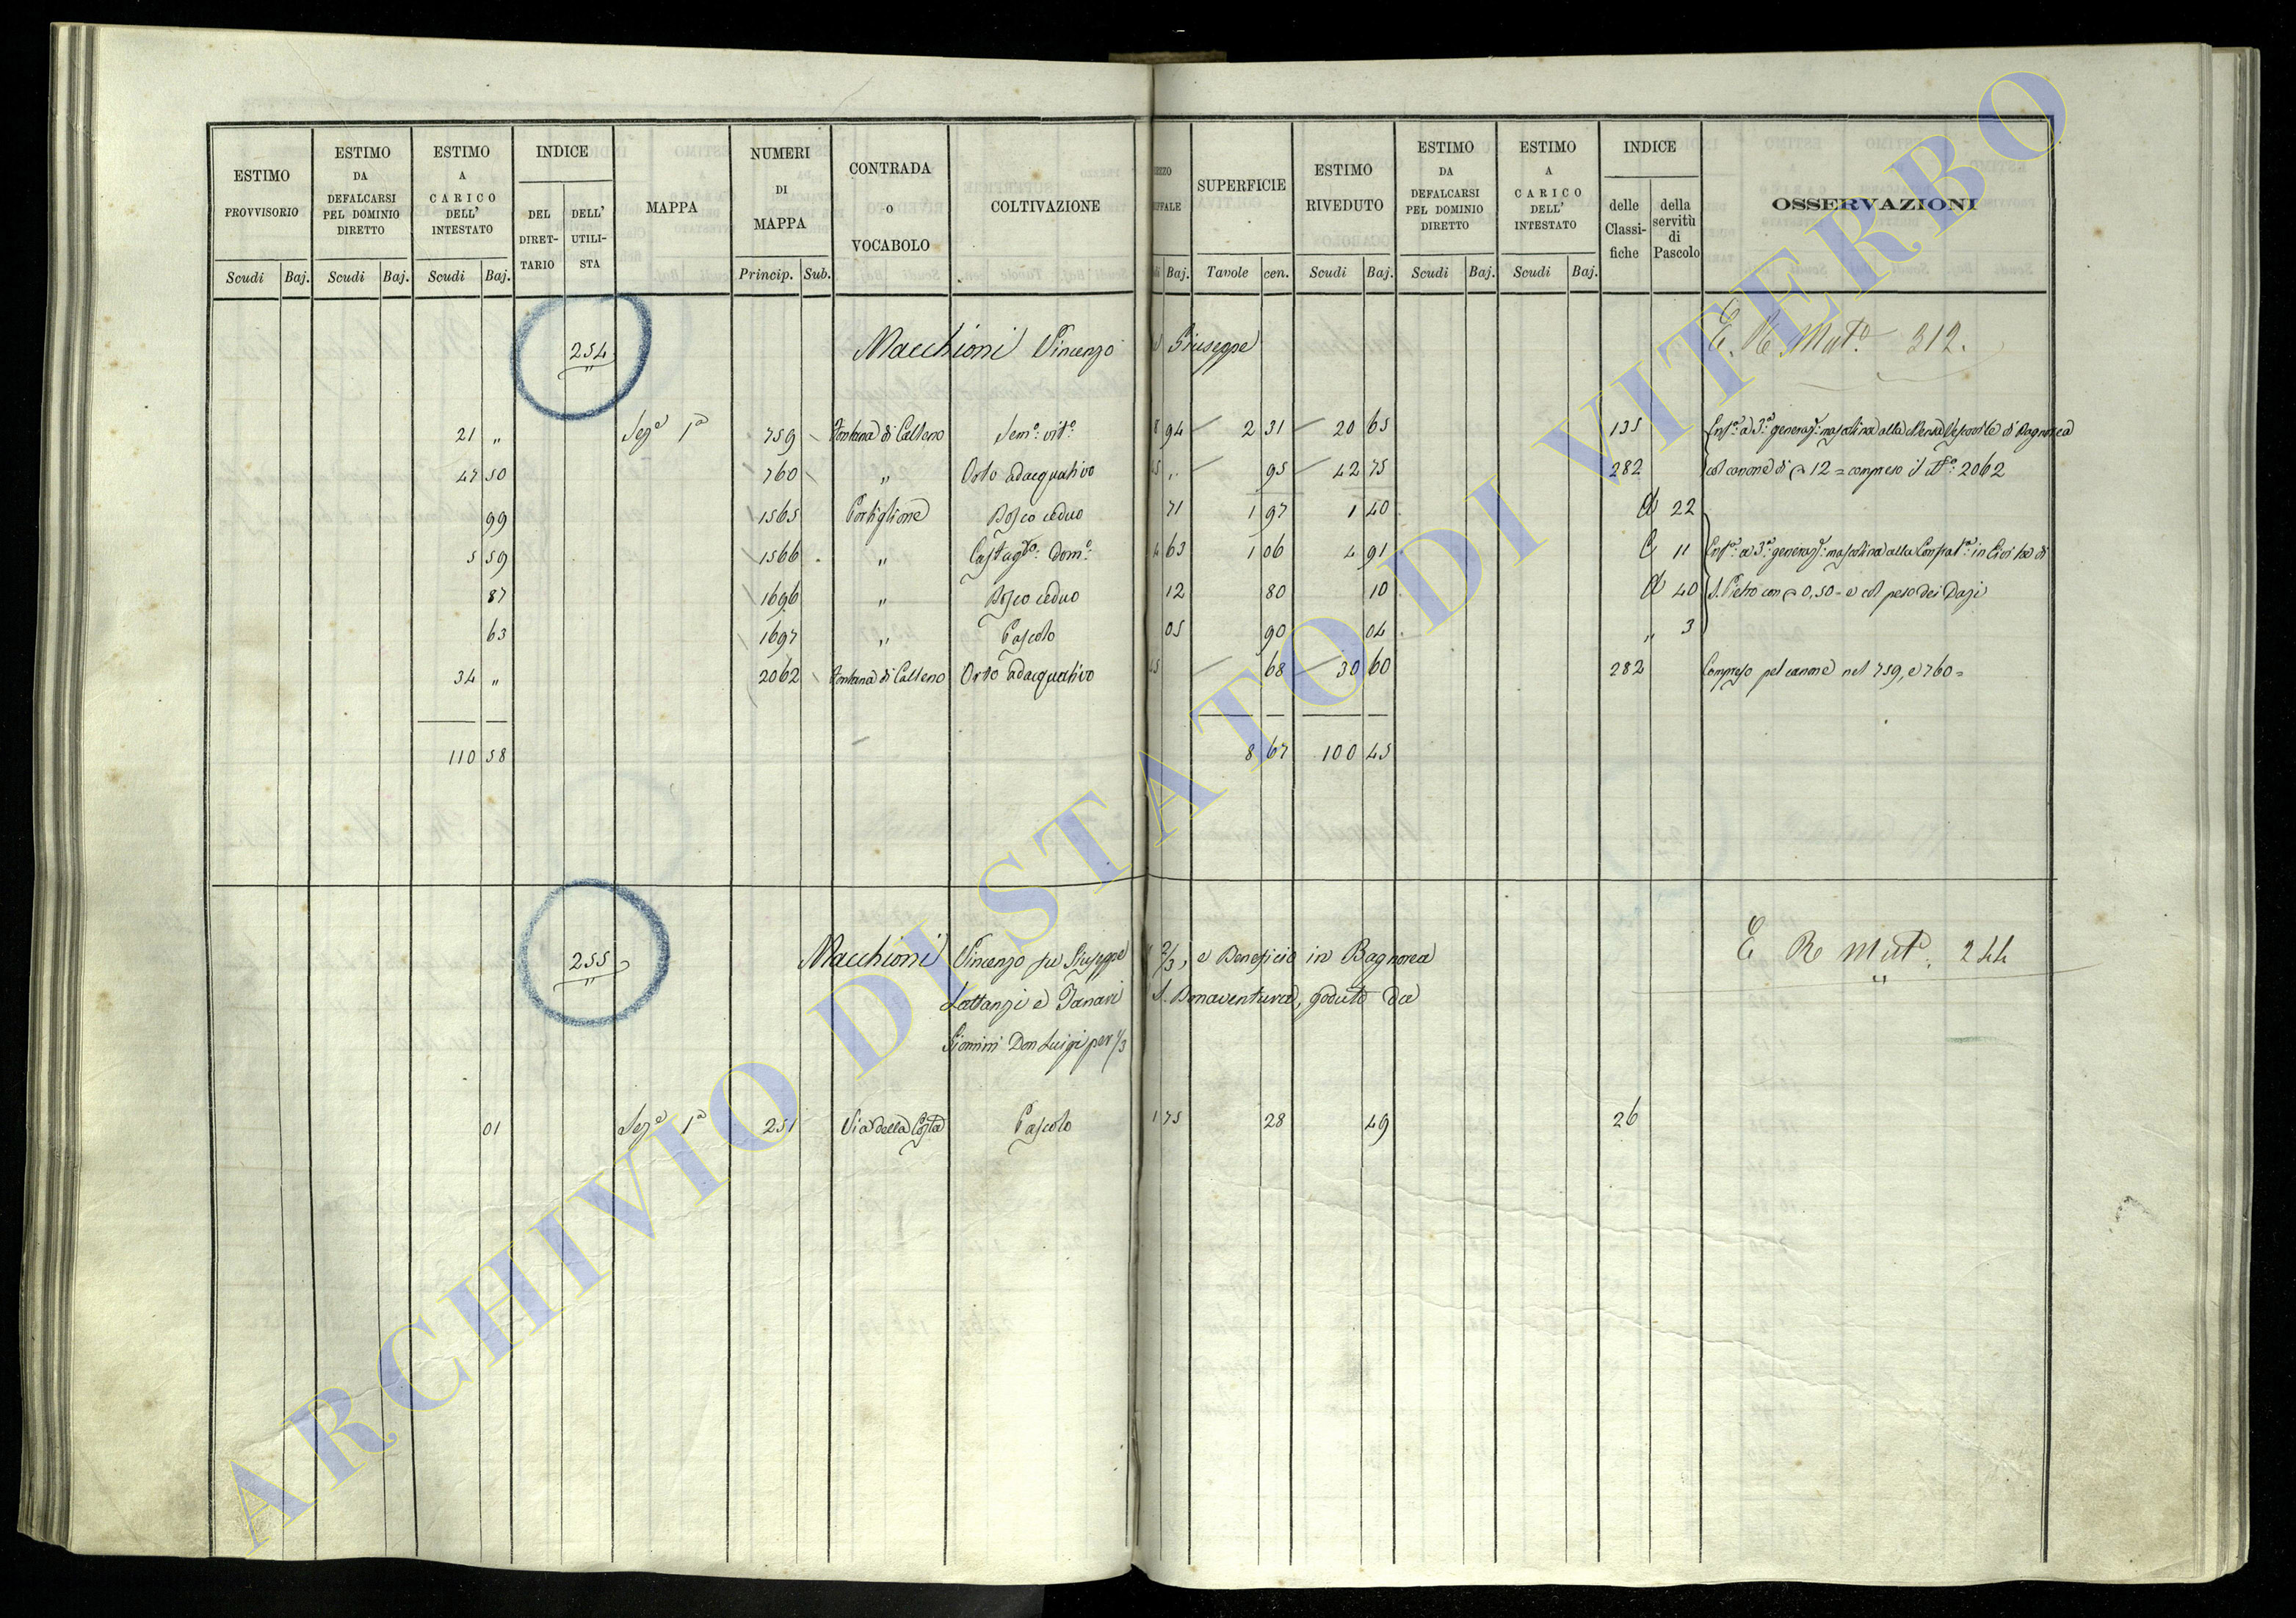 ESTIMO PROVVISORIO | ESTIMO DA DEFALCARSI PEL DOMINIO DIRETTO | ESTIMO A CARICO DELL' INTESTATO | INDICE DEL DIRET-TARIO | DELL' UTILI-STA | MAPPA | NUMERI DI MAPPA | CONTRADA O VOCABOLO | COLTIVAZIONE | SUPERFICIE | ESTIMO RIVEDUTO | ESTIMO DA DEFALCARSI PEL DOMINIO DIRETTO | ESTIMO A CARICO DELL' INTESTATO | INDICE delle Classi-fiche | della servitù di Pascolo | OSSERVAZIONI
Scudi Baj. Scudi Baj. Scudi Baj. Princip. Sub. Baj. Tavole cen. Scudi Baj. Scudi Baj. Scudi Baj.
254 Macchioni Vincenzo Giuseppe E. R Mut. 312.
21 " Sez.e 1a 759 Fontana di Calleno Sem.o vit.o 94 2 31 20 65 135
47 50 760 " Orto adacquativo " 95 42 75 282 col canone di 12 = compreso il N.o 2062
99 1565 Bosco ceduo 71 1 97 1 40 22
5 59 1566 " 63 1 06 4 91 11
87 1696 " Bosco ceduo 12 80 10 40 S. Pietro con 0,50 = e col peso dei Dazi
63 1697 " Pascolo 05 90 04 " 3
34 " 2062 Fontana di Calleno Orto adacquativo 68 30 60 282 Compreso pel canone nel 759, e 760 =
110 58 8 67 100 45
255 Macchioni Vincenzo fu Giuseppe 2/3, e Beneficio in Bagnorea E R Mut. 244
Lattanzi e S. Bonaventura, goduto da
Don Luigi per 1/3
01 Sez.e 1a 251 Via della Costa Pascolo 1 75 28 49 26
ARCHIVIO DI STATO DI VITERBO